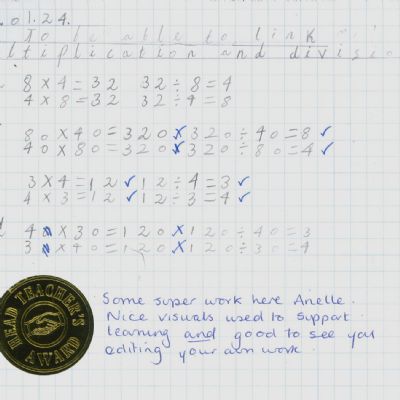 .01.24.
To be able to link
ltiplication and divisio
8×4=32 32÷8=4
4×8=32 32÷4=8
80×40=320x320÷40=8✓
40×80=320x320÷80=4✓
3×4=12✓12÷4=3✓
4×3=12✓12÷3=4✓
4 ×30=120x120÷40=3
3 ×40=120x120÷30=4
HEAD TEACHER'S AWARD
Some super work here Anelle.
Nice visuals used to support
learning and good to see you
editing your own work.